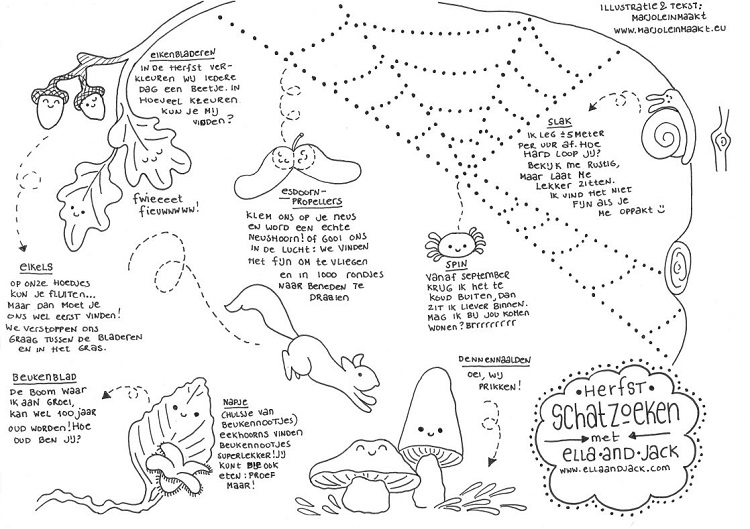 ILLUSTRATIE & TEKST:
MARJOLEINMAAKT
WWW.MARJOLEINMAAKT.EU
EIKENBLADEREN
IN DE HERFST VER-
KLEUREN WIJ IEDERE
DAG EEN BEETJE. IN
HOEVEEL KLEUREN
KUN JE MIJ
VINDEN?
fwieeeet
fieuwwww!
ESDOORN-
PROPELLERS
KLEM ONS OP JE NEUS
EN WORD EEN ECHTE
NEUSHOORN! OF GOOI ONS
IN DE LUCHT: WE VINDEN
HET FIJN OM TE VLIEGEN
EN IN 1000 RONDJES
NAAR BENEDEN TE
DRAAIEN
SLAK
IK LEG ±5 METER
PER UUR AF. HOE
HARD LOOP JIJ?
BEKIJK ME RUSTIG,
MAAR LAAT ME
LEKKER ZITTEN.
IK VIND HET NIET
FIJN ALS JE
ME OPPAKT
SPIN
VANAF SEPTEMBER
KRIJG IK HET TE
KOUD BUITEN, DAN
ZIT IK LIEVER BINNEN.
MAG IK BIJ JOU KOMEN
WONEN? BRRRRRRRR
EIKELS
OP ONZE HOEDJES
KUN JE FLUITEN...
MAAR DAN MOET JE
ONS WEL EERST VINDEN!
WE VERSTOPPEN ONS
GRAAG TUSSEN DE BLADEREN
EN IN HET GRAS.
BEUKENBLAD
DE BOOM WAAR
IK AAN GROEI,
KAN WEL 400 JAAR
OUD WORDEN! HOE
OUD BEN JIJ?
NAPJE
(HULSJE VAN
BEUKENNOOTJES)
EEKHOORNS VINDEN
BEUKENNOOTJES
SUPERLEKKER! JIJ
KUNT ZE OOK
ETEN: PROEF
MAAR!
DENNENNAALDEN
OEI, WIJ
PRIKKEN!
HERFST
SCHATZOEKEN
met
ELLA·AND·JACK
WWW.ELLAANDJACK.COM